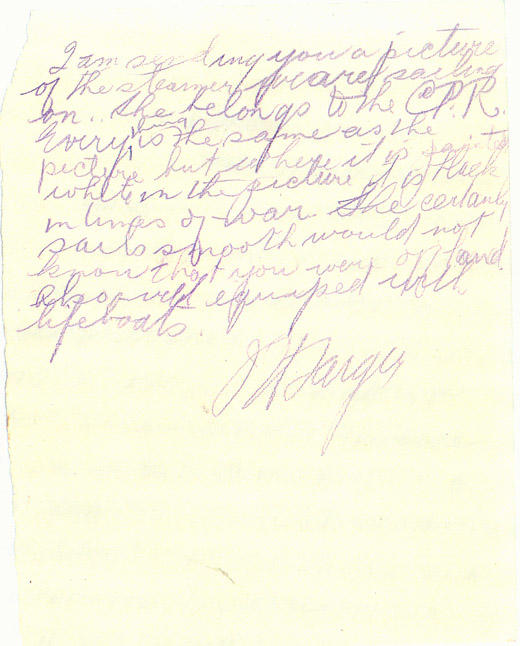 I am sending you a picture
of the steamer we are sailing
on. She belongs to the C.P.R.
Every thing is the same as the
picture but where it is painted
white in the picture it is black
in times of war. She certanly
sails smooth would not
know that you were off land.
Also well equiped with
lifeboats.